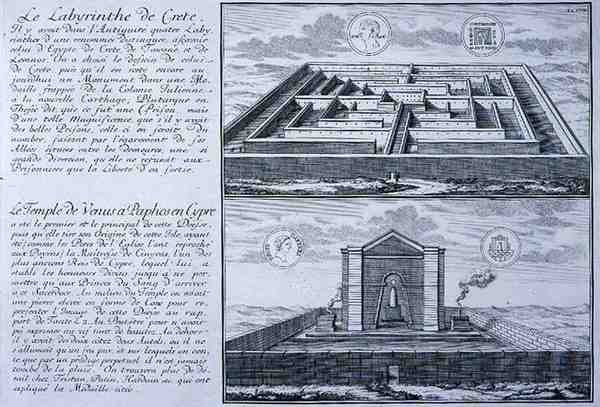 Le Labyrinthe de Crete.
Il y avoit dans l'Antiquité quatre Laby
rinthes d'une renommée distinguée, a sçavoir
celui d'Egypte de Crete, de Toscane et de
Lemnos. On a choisi le dessein de celui
de Crete puis qu'il en reste encore au
jourdhui un Monument dans une Me
daille frappée de la Colonie Julienne
a la nouvelle Carthage, Plutarque en
These dit, que ce fut une Prison mais
d'une telle Magnificence, que s'il y avoit
des belles Prisons, celle ci en seroit du
nombre, faisant par l'égarement de ses
Allées situées entre les demeures, une si
grande diversion, qu'elle ne refusoit aux
Prisonniers que la Liberté d'en sortir.
Le Temple de Venus à Paphos en Cypre
a été le premier et le principal de cette Déesse,
puis qu'elle tire son Origine de cette Isle, ayant
été, comme les Peres de l'Eglise l'ont reproché
aux Payens, la Maitresse de Cinyras, l'un des
plus anciens Rois de Cypre, lequel lui a
etabli les honneurs Divins, jusqu'a ne per
mettre qu'aux Princes du Sang d'arriver
a ce Sacerdoce. Au milieu du Temple on voioit
une pierre elevée en forme de Cone pour re
presenter l'Image de cette Déesse au rap
port de Tacite L. 2. Au dehors
il y avoit des deux côtez deux Autels, ou il ne
s'allumoit qu'un feu pur, et sur lesquels on con
te que par un prodige perpetuel il n'est jamais
tombé de la pluie. On trouvera plus de de
tail chez Tristan, Patin, Harduin &c. que ont
expliqué la Medaille citée.